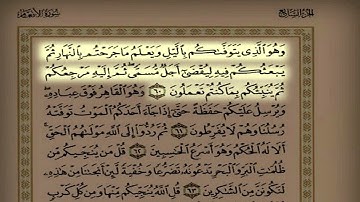 سورة الأنعام الجزء السابع
وهو الذي يتوفىكم بٱليل ويعلم ما جرحتم بٱلنهار ثم
يبعثكم فيه ليقضى أجل مسمى ثم إليه مرجعكم
ثم ينبئكم بما كنتم تعملون ٦٠ وهو ٱلقاهر فوق عباده
ويرسل عليكم حفظة حتى إذا جاء أحدكم ٱلموت توفته
رسلنا وهم لا يفرطون ٦١ ثم ردوا إلى ٱلله مولىهم ٱلحق
ألا له ٱلحكم وهو أسرع ٱلحسبين ٦٢ قل من ينجيكم من
ظلمت ٱلبر وٱلبحر تدعونه تضرعا وخفية لئن أنجىنا من هذه
لنكونن من ٱلشكرين ٦٣ قل ٱلله ينجيكم منها ومن كل كرب